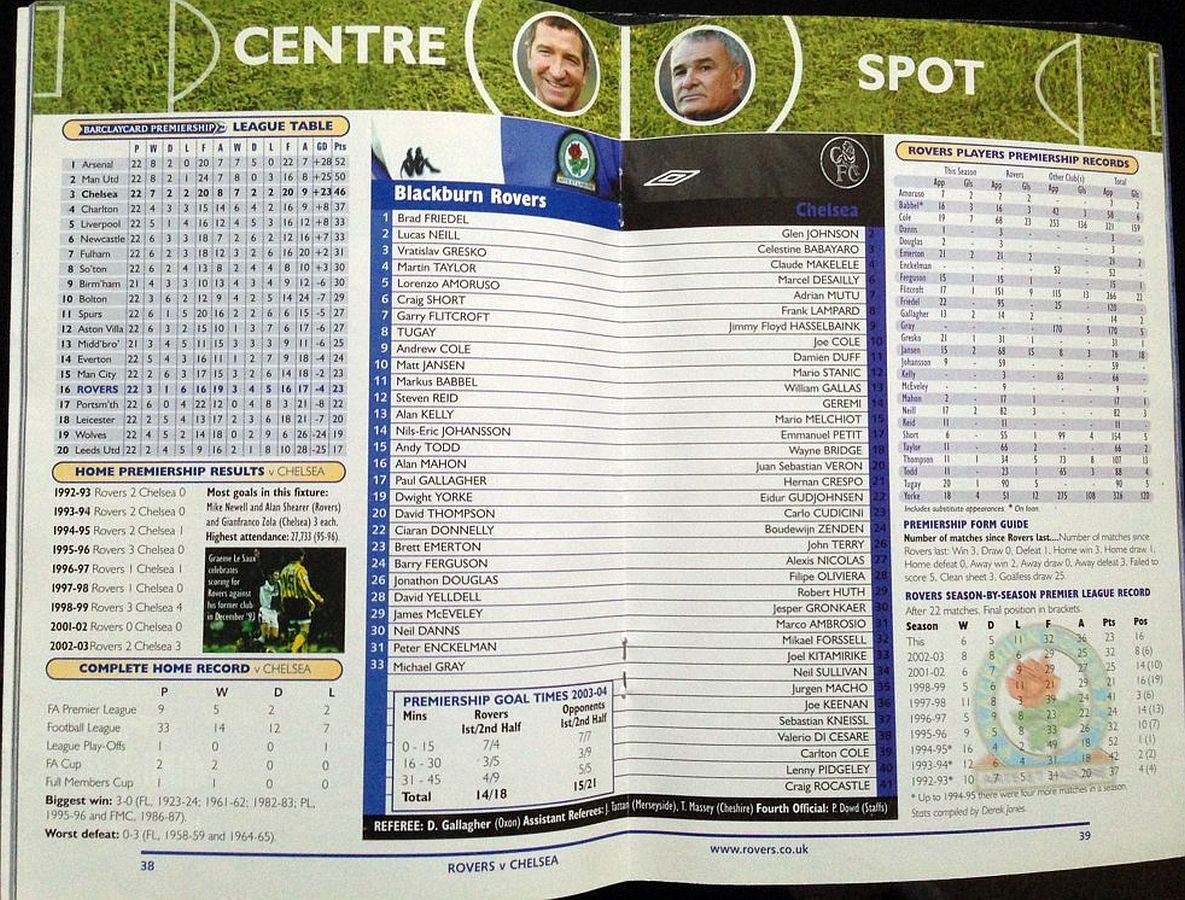 CENTRE
SPOT
BARCLAYCARD PREMIERSHIP LEAGUE TABLE
P W D L F A W D L F A GD Pts
1 Arsenal 22 8 2 0 20 7 7 5 0 22 7 +28 52
2 Man Utd 22 8 2 1 24 7 8 0 3 16 8 +25 50
3 Chelsea 22 7 2 2 20 8 7 2 2 20 9 +23 46
4 Charlton 22 4 3 3 15 14 6 4 2 16 9 +8 37
5 Liverpool 22 5 1 4 16 12 4 5 3 16 12 +8 33
6 Newcastle 22 6 3 3 18 7 2 6 2 12 16 +7 33
7 Fulham 22 6 2 3 18 12 3 2 6 16 20 +2 31
8 So'ton 22 6 2 4 13 8 2 4 4 8 10 +3 30
9 Birm'ham 21 4 3 3 10 13 4 3 4 9 12 -6 30
10 Bolton 22 3 6 2 12 9 4 2 5 14 24 -7 29
11 Spurs 22 6 1 5 20 16 2 2 6 6 15 -5 27
12 Aston Villa 22 6 3 2 15 10 1 3 7 6 17 -6 27
13 Midd'bro' 21 3 4 5 11 15 3 3 3 9 11 -6 25
14 Everton 22 5 4 3 16 11 1 2 7 9 18 -4 24
15 Man City 22 2 6 3 17 15 3 2 6 14 18 -2 23
16 ROVERS 22 3 1 6 16 19 3 4 5 16 17 -4 23
17 Portsm'th 22 6 0 4 22 12 0 4 8 3 21 -8 22
18 Leicester 22 2 5 4 13 17 2 3 6 18 21 -7 20
19 Wolves 22 4 5 2 14 18 0 2 9 6 26 -24 19
20 Leeds Utd 22 2 4 5 9 16 2 1 8 10 28 -25 17
HOME PREMIERSHIP RESULTS v CHELSEA
1992-93 Rovers 2 Chelsea 0
1993-94 Rovers 2 Chelsea 0
1994-95 Rovers 2 Chelsea 1
1995-96 Rovers 3 Chelsea 0
1996-97 Rovers 1 Chelsea 1
1997-98 Rovers 1 Chelsea 0
1998-99 Rovers 3 Chelsea 4
2001-02 Rovers 0 Chelsea 0
2002-03 Rovers 2 Chelsea 3
Most goals in this fixture:
Mike Newell and Alan Shearer (Rovers)
and Gianfranco Zola (Chelsea) 3 each.
Highest attendance: 27,733 (95-96).
Graeme Le Saux
celebrates
scoring for
Rovers against
his former club
in December '93
COMPLETE HOME RECORD v CHELSEA
P W D L
FA Premier League 9 5 2 2
Football League 33 14 12 7
League Play-Offs 1 0 0 1
FA Cup 2 2 0 0
Full Members Cup 1 1 0 0
Biggest win: 3-0 (FL, 1923-24; 1961-62; 1982-83; PL,
1995-96 and FMC, 1986-87).
Worst defeat: 0-3 (FL, 1958-59 and 1964-65).
38
ROVERS v CHELSEA
Blackburn Rovers
1 Brad FRIEDEL
2 Lucas NEILL
3 Vratislav GRESKO
4 Martin TAYLOR
5 Lorenzo AMORUSO
6 Craig SHORT
7 Garry FLITCROFT
8 TUGAY
9 Andrew COLE
10 Matt JANSEN
11 Markus BABBEL
12 Steven REID
13 Alan KELLY
14 Nils-Eric JOHANSSON
15 Andy TODD
16 Alan MAHON
17 Paul GALLAGHER
19 Dwight YORKE
20 David THOMPSON
22 Ciaran DONNELLY
23 Brett EMERTON
24 Barry FERGUSON
26 Jonathon DOUGLAS
28 David YELLDELL
29 James McEVELEY
30 Neil DANNS
31 Peter ENCKELMAN
33 Michael GRAY
PREMIERSHIP GOAL TIMES 2003-04
Mins Rovers Opponents
1st/2nd Half 1st/2nd Half
0 - 15 7/4 7/7
16 - 30 3/5 3/9
31 - 45 4/9 5/5
Total 14/18 15/21
REFEREE: D. Gallagher (Oxon) Assistant Referees: J. Tattan (Merseyside), T. Massey (Cheshire) Fourth Official: P. Dowd (Staffs)
Chelsea
Glen JOHNSON 2
Celestine BABAYARO 3
Claude MAKELELE 4
Marcel DESAILLY 6
Adrian MUTU 7
Frank LAMPARD 8
Jimmy Floyd HASSELBAINK 9
Joe COLE 10
Damien DUFF 11
Mario STANIC 12
William GALLAS 13
GEREMI 14
Mario MELCHIOT 15
Emmanuel PETIT 17
Wayne BRIDGE 18
Juan Sebastian VERON 20
Hernan CRESPO 21
Eidur GUDJOHNSEN 22
Carlo CUDICINI 23
Boudewijn ZENDEN 24
John TERRY 26
Alexis NICOLAS 27
Filipe OLIVIERA 28
Robert HUTH 29
Jesper GRONKAER 30
Marco AMBROSIO 31
Mikael FORSSELL 32
Joel KITAMIRIKE 33
Neil SULLIVAN 34
Jurgen MACHO 35
Joe KEENAN 36
Sebastian KNEISSL 37
Valerio DI CESARE 38
Carlton COLE 39
Lenny PIDGELEY 40
Craig ROCASTLE 41
ROVERS PLAYERS PREMIERSHIP RECORDS
This Season Rovers Other Club(s) Total
App Gls App Gls App Gls App Gls
Amoruso 7 2 7 2 - - 7 2
Babbel* 16 3 16 3 42 3 58 6
Cole 19 7 68 23 253 136 321 159
Danns 1 - 3 - - - 3 -
Douglas 2 - 3 - - - 3 -
Emerton 21 2 21 2 - - 21 2
Enckelman - - - - 52 - 52 -
Ferguson 15 1 15 1 - - 15 1
Flitcroft 17 1 151 9 115 13 266 22
Friedel 22 - 95 - 25 - 120 -
Gallagher 13 2 14 2 - - 14 2
Gray - - - - 170 5 170 5
Gresko 21 1 31 1 - - 31 1
Jansen 15 2 68 15 8 3 76 18
Johansson 9 - 59 - - - 59 -
Kelly - - 3 - 63 - 66 -
McEveley - - 9 - - - 9 -
Mahon 2 - 17 1 - - 17 1
Neill 17 2 82 3 - - 82 3
Reid 11 - 11 - - - 11 -
Short 6 - 55 1 99 4 154 5
Taylor 11 - 66 2 - - 66 2
Thompson 11 1 34 5 73 8 107 13
Todd 11 - 23 1 65 3 88 4
Tugay 20 1 90 5 - - 90 5
Yorke 18 4 51 12 275 108 326 120
Includes substitute appearances. * On loan.
PREMIERSHIP FORM GUIDE
Number of matches since Rovers last....Number of matches since
Rovers last: Win 3, Draw 0, Defeat 1, Home win 3, Home draw 1,
Home defeat 0, Away win 2, Away draw 0, Away defeat 3, Failed to
score 5, Clean sheet 3, Goalless draw 25.
ROVERS SEASON-BY-SEASON PREMIER LEAGUE RECORD
After 22 matches. Final position in brackets.
Season W D L F A Pts Pos
This 6 5 11 32 36 23 16
2002-03 8 8 6 29 25 32 8 (6)
2001-02 6 7 9 29 27 25 14 (10)
1998-99 5 6 11 21 29 21 16 (19)
1997-98 11 8 3 39 24 41 3 (6)
1996-97 5 9 8 23 22 24 14 (13)
1995-96 9 5 8 33 26 32 10 (7)
1994-95* 16 4 2 49 18 52 1 (1)
1993-94* 12 6 4 31 18 42 2 (2)
1992-93* 10 7 5 34 20 37 4 (4)
* Up to 1994-95 there were four more matches in a season.
Stats compiled by Derek Jones.
www.rovers.co.uk
39